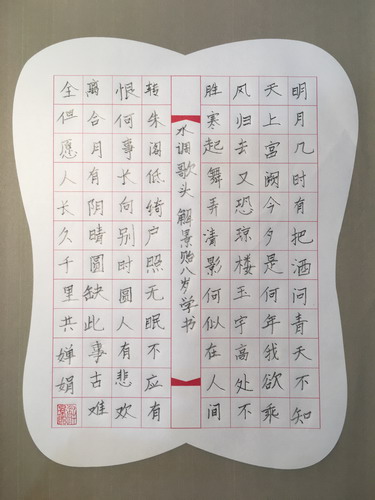 明月几时有把酒问青天不知
天上宫阙今夕是何年我欲乘
风归去又恐琼楼玉宇高处不
胜寒起舞弄清影何似在人间
水调歌头 解景贻八岁学书
转朱阁低绮户照无眠不应有
恨何事长向别时圆人有悲欢
离合月有阴晴圆缺此事古难
全但愿人长久千里共婵娟